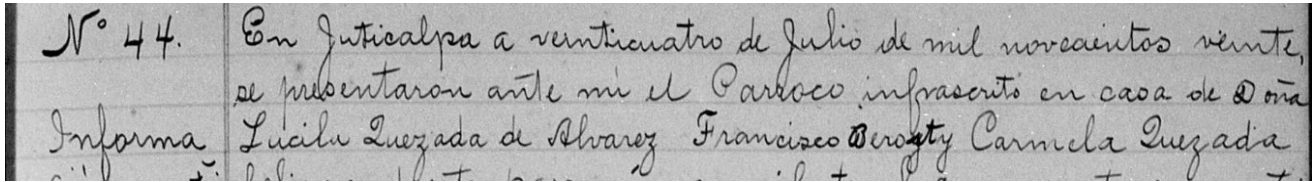 Nº 44. En Juticalpa a veinticuatro de Julio de mil novecientos veinte,
se presentaron ante mi el Parroco infrascrito en casa de Doña
Informa Lucila Quezada de Alvarez Francisco y Carmela Quezada